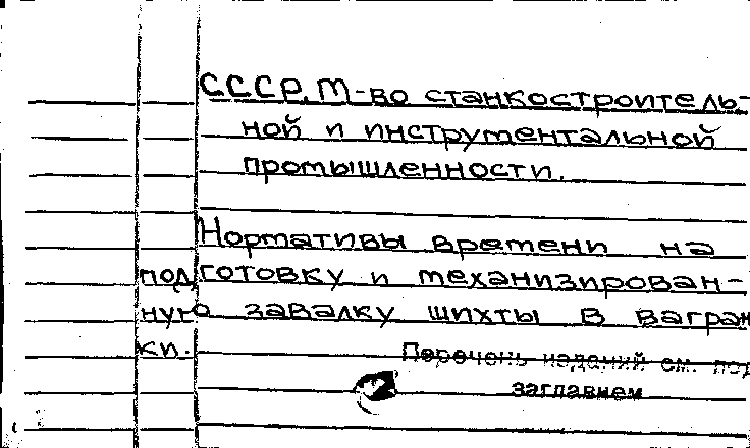 СССР. М-во станкостроитель-
ной и инструментальной
промышленности.
Нормативы времени на
подготовку и механизирован-
ную завалку шихты в вагран
ки.
Перечень изданий см. под
заглавием